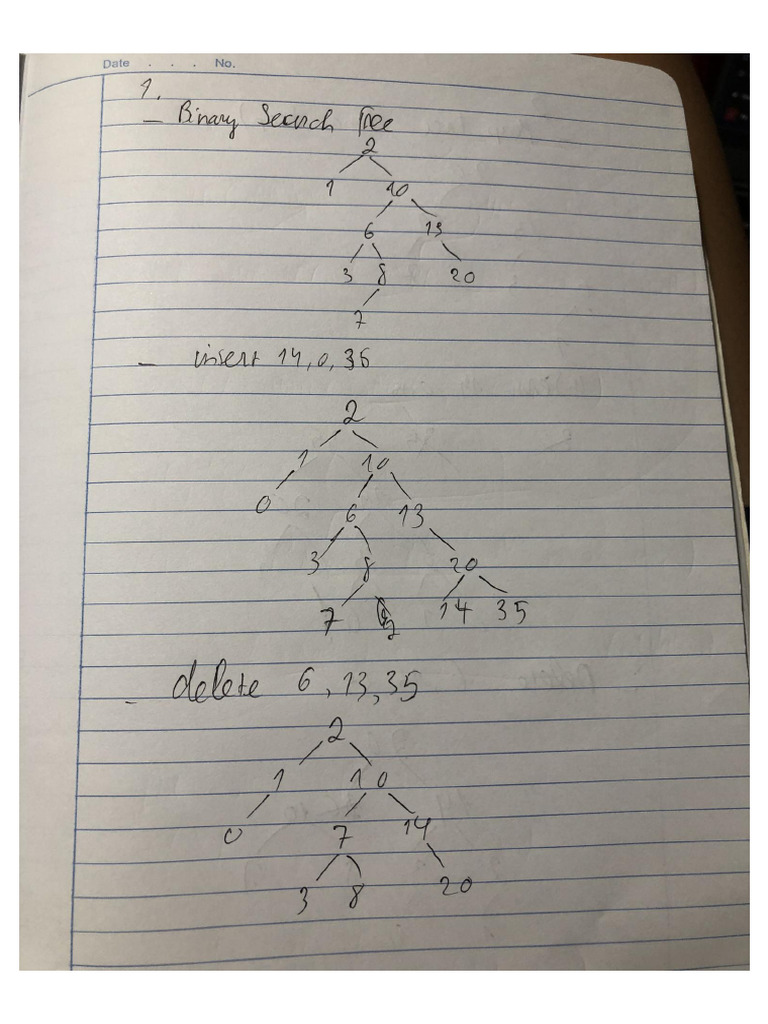 Date . . . No.
1.
- Binary Search Tree
2
1 10
6 13
3 8 20
7
- insert 14, 0, 35
2
1 10
0 6 13
3 8 20
7 14 35
- delete 6, 13, 35
2
1 10
0 7 14
3 8 20